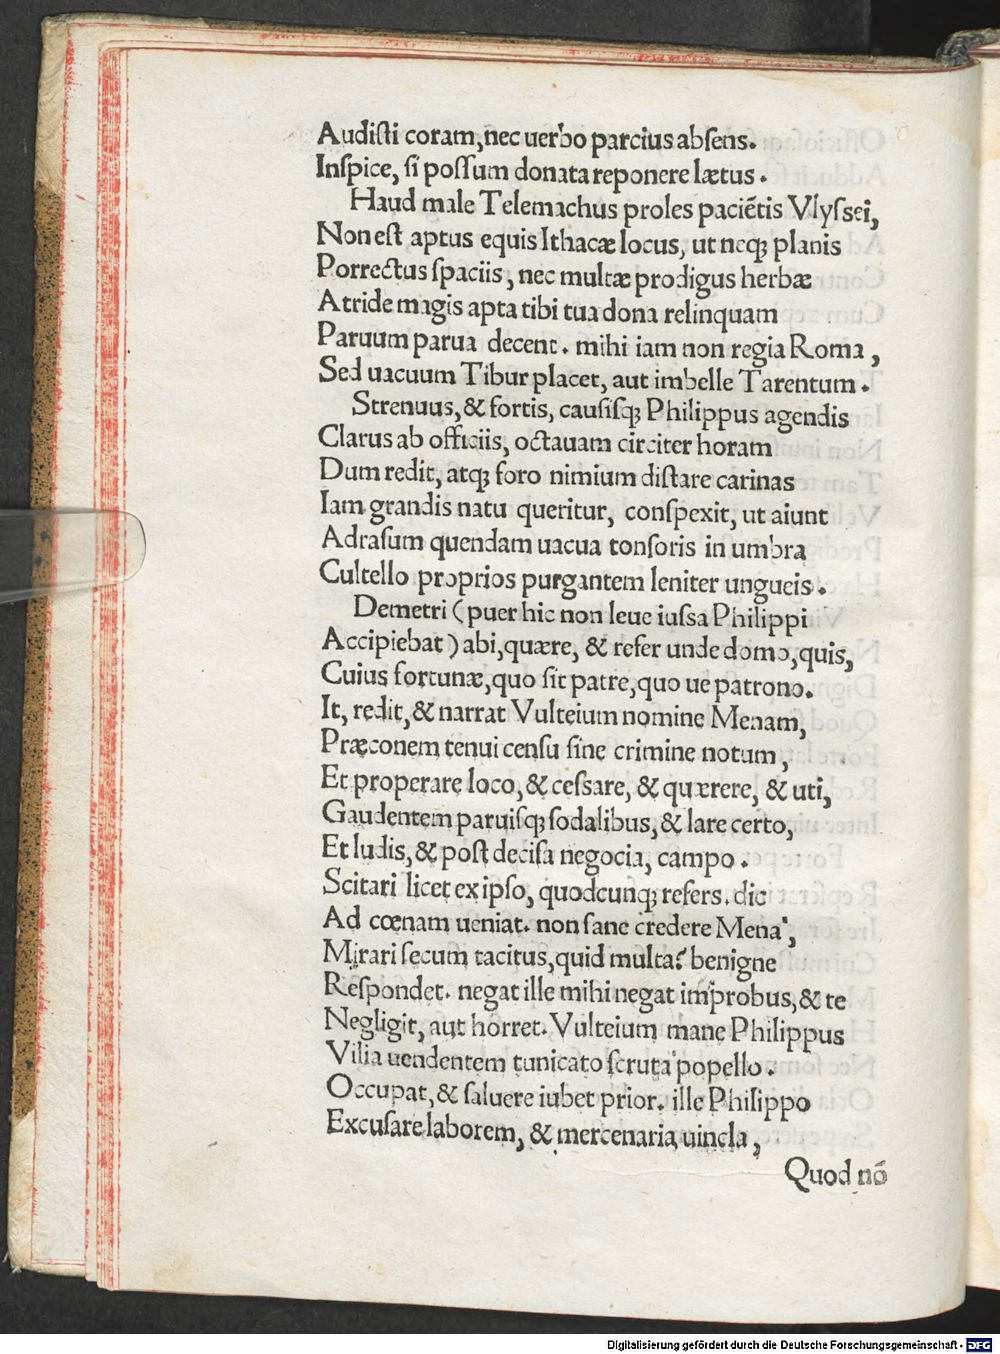 Audisti coram, nec uerbo parcius absens.
Inspice, si possum donata reponere lætus.
Haud male Telemachus proles paciētis Vlyssei,
Non est aptus equis Ithacæ locus, ut neqꝫ planis
Porrectus spaciis, nec multæ prodigus herbæ
Atride magis apta tibi tua dona relinquam
Paruum parua decent. mihi iam non regia Roma,
Sed uacuum Tibur placet, aut imbelle Tarentum.
Strenuus, & fortis, causisqꝫ Philippus agendis
Clarus ab officiis, octauam circiter horam
Dum redit, atqꝫ foro nimium distare carinas
Iam grandis natu queritur, conspexit, ut aiunt
Adrasum quendam uacua tonsoris in umbra
Cultello proprios purgantem leniter ungueis.
Demetri (puer hic non leue iussa Philippi
Accipiebat) abi, quære, & refer unde domo, quis,
Cuius fortunæ, quo sit patre, quo ue patrono.
It, redit, & narrat Vulteium nomine Menam,
Præconem tenui censu sine crimine notum,
Et properare loco, & cessare, & quærere, & uti,
Gaudentem paruisqꝫ sodalibus, & lare certo,
Et ludis, & post decisa negocia, campo.
Scitari licet ex ipso, quodcunqꝫ refers. dic
Ad cœnam ueniat. non sane credere Mena,
Mirari secum tacitus, quid multa? benigne
Respondet. negat ille mihi negat improbus, & te
Negligit, aut horret. Vulteium mane Philippus
Vilia uendentem tunicato scruta popello.
Occupat, & saluere iubet prior. ille Philippo
Excusare laborem, & mercenaria uincla,
Quod nō
Digitalisierung gefördert durch die Deutsche Forschungsgemeinschaft - DFG